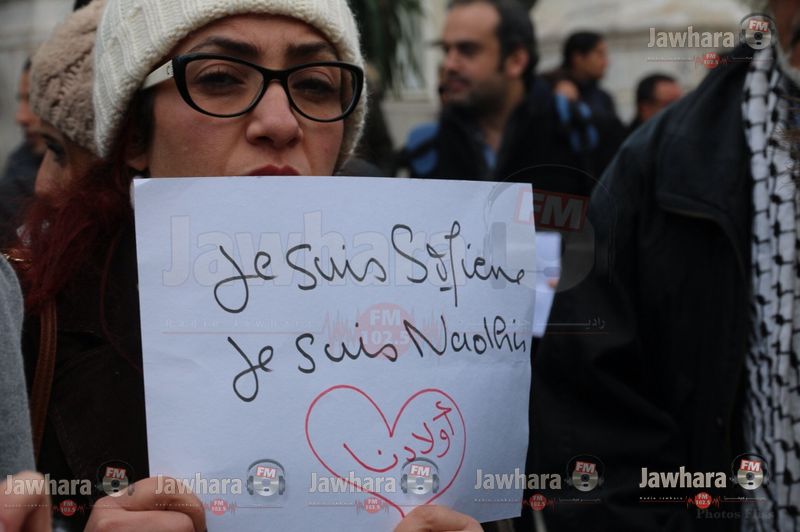 Jawhara FM
Je suis Sofiene
Je suis Nadhir
أولادنا
Jawhara
FM
102.5
Jawhara FM
Jawhara FM
Jawhara FM
Jawhara FM
Jawhara FM